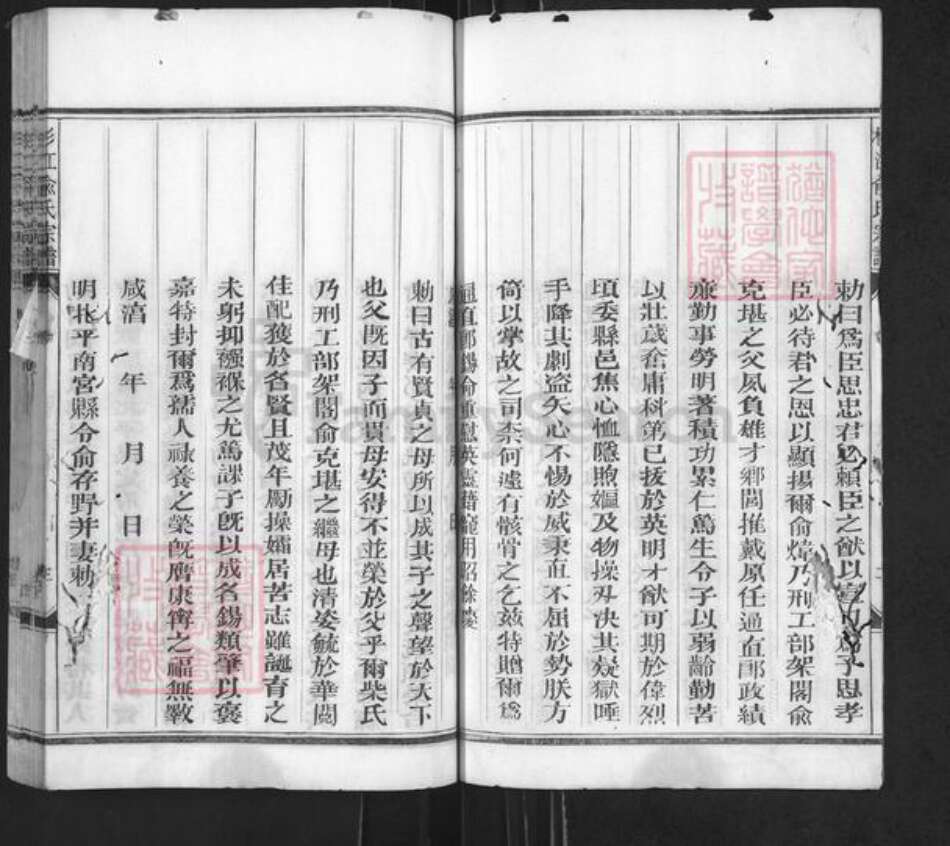 勅曰爲臣思忠君必賴臣之猷以子思孝
臣必待君之恩以顯揚爾俞煒乃刑工部架閣俞
克堪之父夙負雄才鄉閭推戴原任通直郎政績
旅勤事勞明著積功累仁篤生令子以弱齡勤苦
以壯歲奮庸科第已拔於英明才猷可期於偉烈
頃委縣邑焦心恤隱煦嫗及物操刄决其疑獄唾
手降其劇盜矢心不惕於威秉直不屈於勢朕方
倚以掌故之司柰何遽有骸骨之乞兹特贈爾爲
通直郎錫命重慰英靈藉寵用昭餘慶
勅曰古有賢貞之母所以成其子之聲望於天下
也父旣因子而貴母安得不並榮於父乎爾柴氏
乃刑工部架閣俞克堪之繼母也清姿毓於華閥
佳配獲於名賢且茂年勵操孀居苦志雖誕育之
未躬抑襁褓之尤篤課子旣以成名錫類肇以褒
嘉特封爾爲孺人祿養之榮旣膺康寗之福無斁
咸淳 年 月 日
明北平南宮縣令俞存野并妻勅
杉江俞氏宗譜